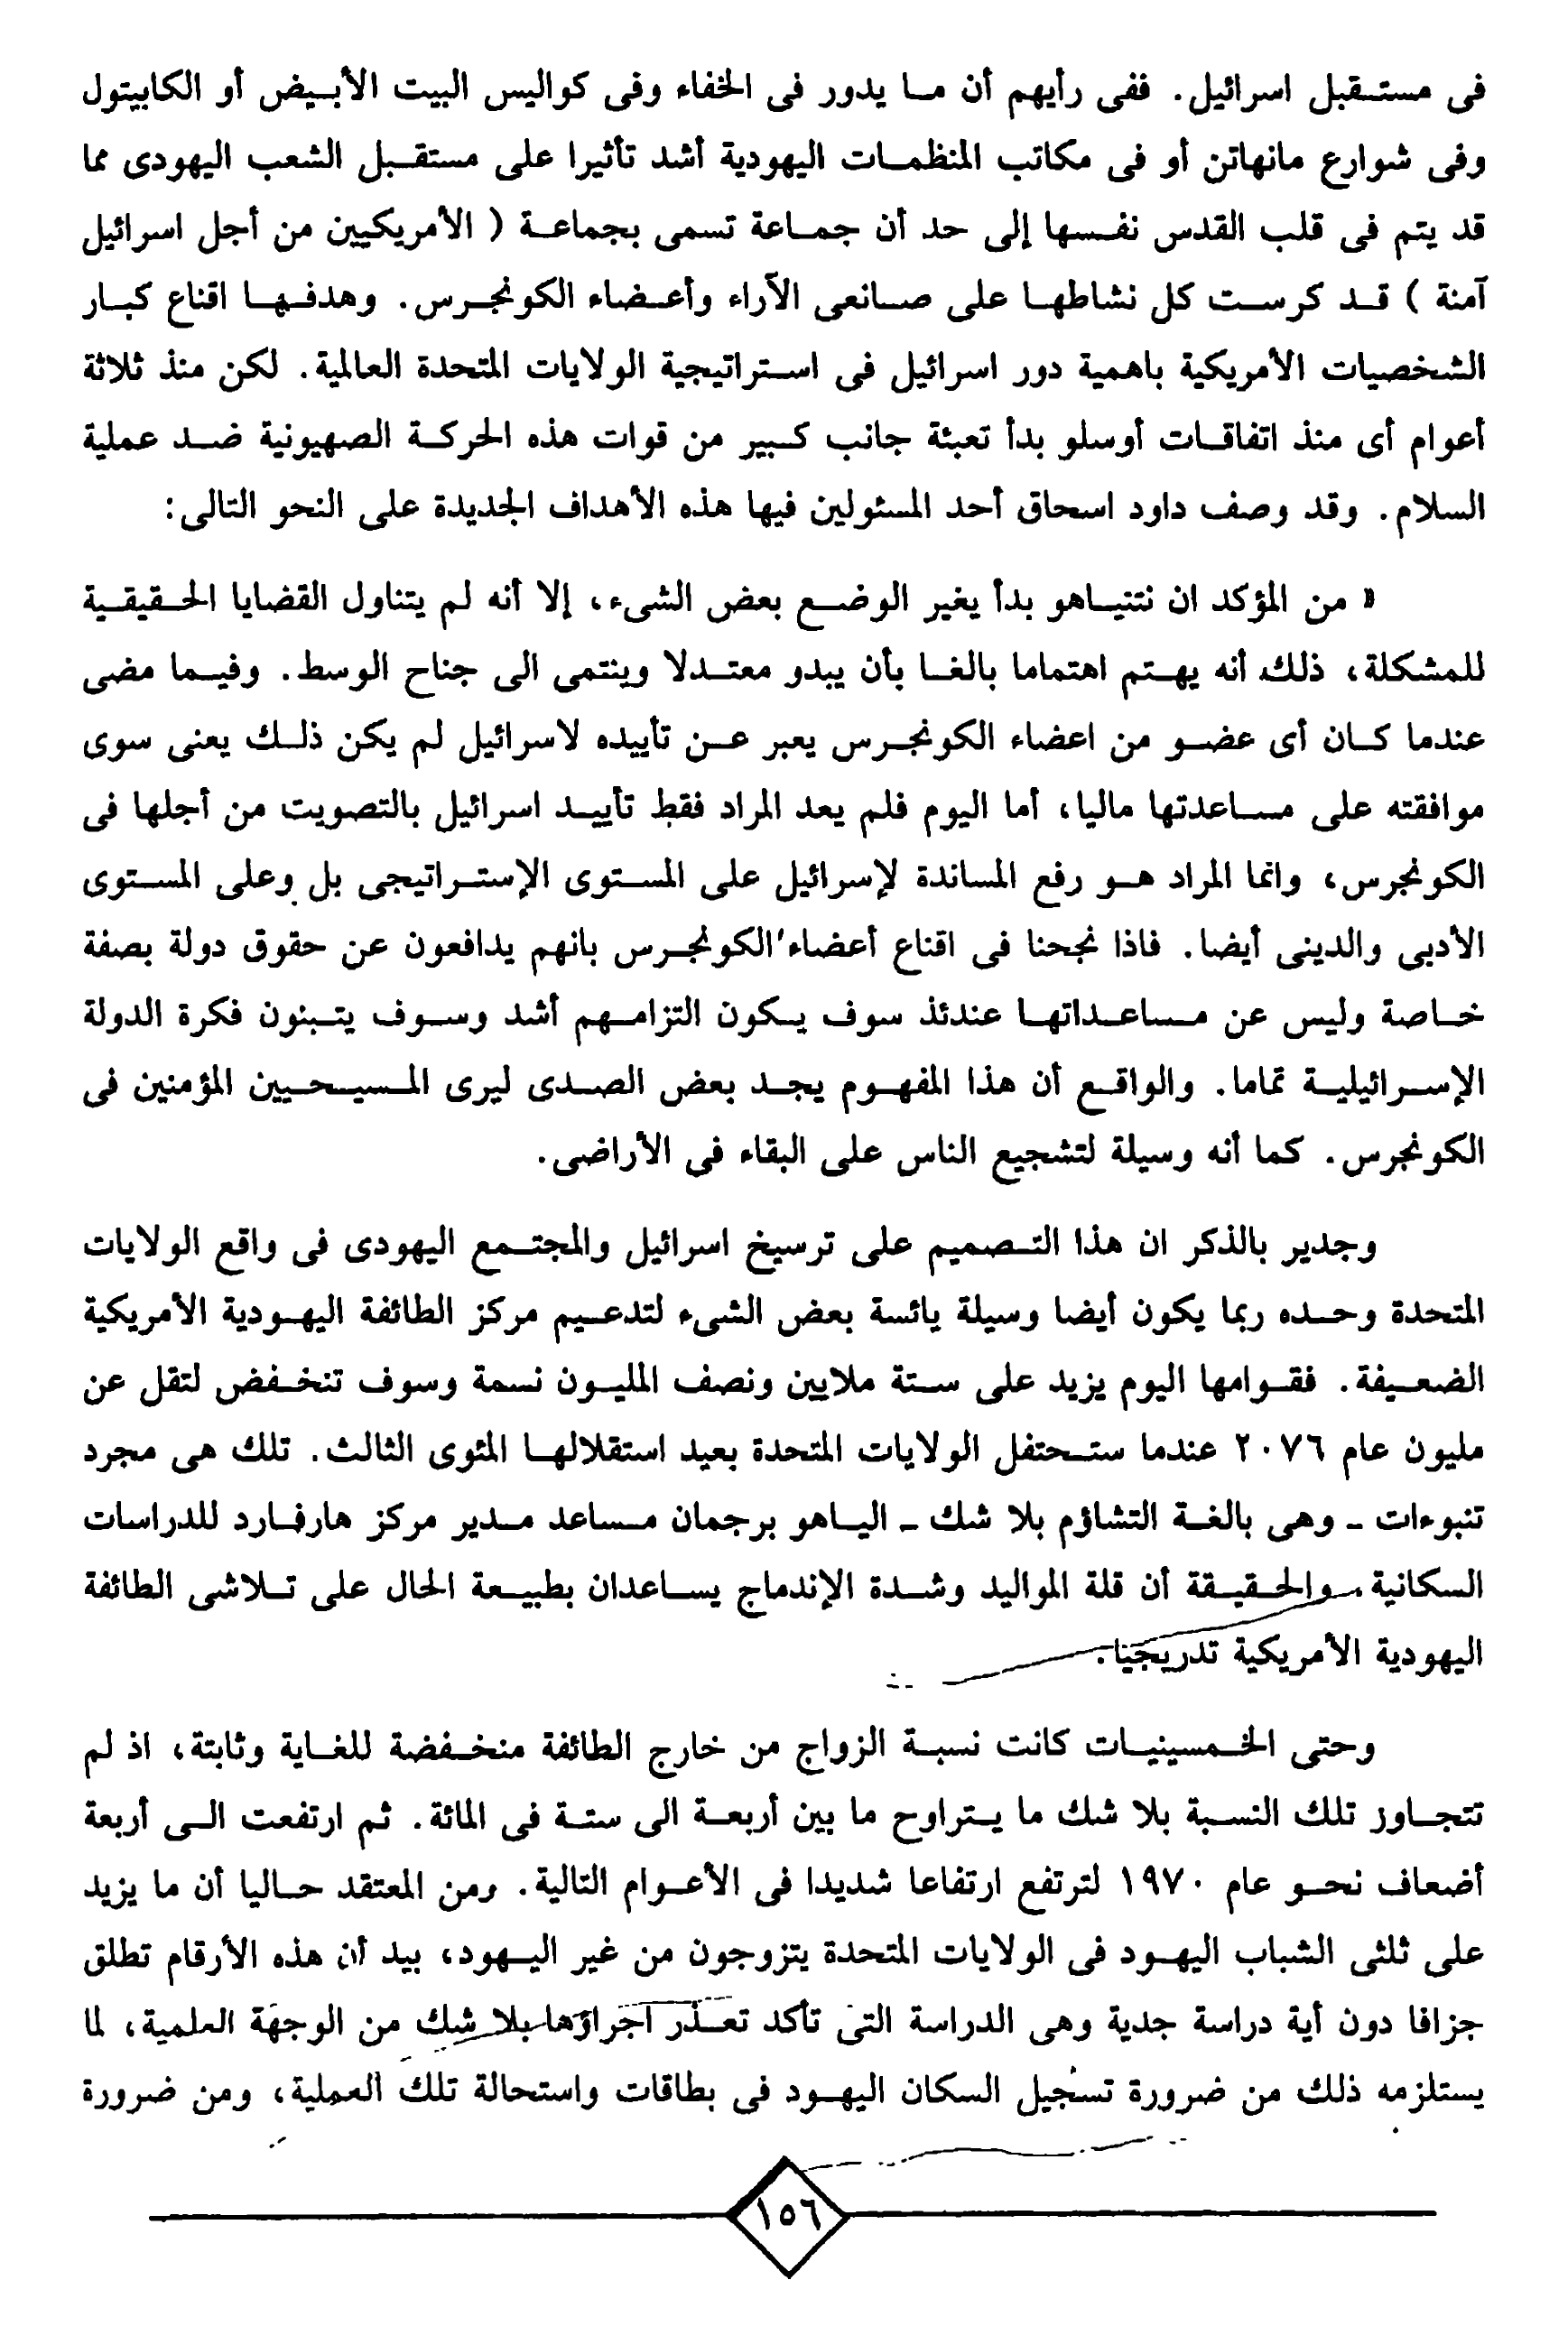 فى مستقبل اسرائيل. ففى رأيهم أن ما يدور فى الخفاء وفى كواليس البيت الأبيض أو الكابيتول
وفى شوارع مانهاتن أو فى مكاتب المنظمات اليهودية أشد تأثيرا على مستقبل الشعب اليهودى مما
قد يتم فى قلب القدس نفسها إلى حد أن جماعة تسمى بجماعة ( الأمريكيين من أجل اسرائيل
آمنة ) قد كرست كل نشاطها على صانعى الآراء وأعضاء الكونجرس. وهدفها اقناع كبار
الشخصيات الأمريكية باهمية دور اسرائيل فى استراتيجية الولايات المتحدة العالمية. لكن منذ ثلاثة
أعوام أى منذ اتفاقات أوسلو بدأ تعبئة جانب كبير من قوات هذه الحركة الصهيونية ضد عملية
السلام. وقد وصف داود اسحاق أحد المسئولين فيها هذه الأهداف الجديدة على النحو التالى:
« من المؤكد ان نتنياهو بدأ يغير الوضع بعض الشىء، إلا أنه لم يتناول القضايا الحقيقية
للمشكلة، ذلك أنه يهتم اهتماما بالغا بأن يبدو معتدلا وينتمى الى جناح الوسط. وفيما مضى
عندما كان أى عضو من اعضاء الكونجرس يعبر عن تأييده لاسرائيل لم يكن ذلك يعنى سوى
موافقته على مساعدتها ماليا، أما اليوم فلم يعد المراد فقط تأييد اسرائيل بالتصويت من أجلها فى
الكونجرس، وانما المراد هو رفع المساندة لإسرائيل على المستوى الإستراتيجى بل وعلى المستوى
الأدبى والدينى أيضا. فاذا نجحنا فى اقناع أعضاء الكونجرس بانهم يدافعون عن حقوق دولة بصفة
خاصة وليس عن مساعداتها عندئذ سوف يكون التزامهم أشد وسوف يتبنون فكرة الدولة
الإسرائيلية تماما. والواقع أن هذا المفهوم يجد بعض الصدى ليرى المسيحيين المؤمنين فى
الكونجرس. كما أنه وسيلة لتشجيع الناس على البقاء فى الأراضى.
وجدير بالذكر ان هذا التصميم على ترسيخ اسرائيل والمجتمع اليهودى فى واقع الولايات
المتحدة وحده ربما يكون أيضا وسيلة يائسة بعض الشىء لتدعيم مركز الطائفة اليهودية الأمريكية
الضعيفة. فقوامها اليوم يزيد على ستة ملايين ونصف المليون نسمة وسوف تنخفض لتقل عن
مليون عام ٢٠٧٦ عندما ستحتفل الولايات المتحدة بعيد استقلالها المئوى الثالث. تلك هى مجرد
تنبوءات - وهى بالغة التشاؤم بلا شك - الياهو برجمان مساعد مدير مركز هارفارد للدراسات
السكانية. والحقيقة أن قلة المواليد وشدة الإندماج يساعدان بطبيعة الحال على تلاشى الطائفة
اليهودية الأمريكية تدريجيا.
وحتى الخمسينيات كانت نسبة الزواج من خارج الطائفة منخفضة للغاية وثابتة، اذ لم
تتجاوز تلك النسبة بلا شك ما يتراوح ما بين أربعة الى ستة فى المائة. ثم ارتفعت الى أربعة
أضعاف نحو عام ١٩٧٠ لترتفع ارتفاعا شديدا فى الأعوام التالية. ومن المعتقد حاليا أن ما يزيد
على ثلثى الشباب اليهود فى الولايات المتحدة يتزوجون من غير اليهود، بيد أن هذه الأرقام تطلق
جزافا دون أية دراسة جدية وهى الدراسة التى تأكد تعذر اجراؤها بلا شك من الوجهة العلمية، لما
يستلزمه ذلك من ضرورة تسجيل السكان اليهود فى بطاقات واستحالة تلك العملية، ومن ضرورة
١٥٦